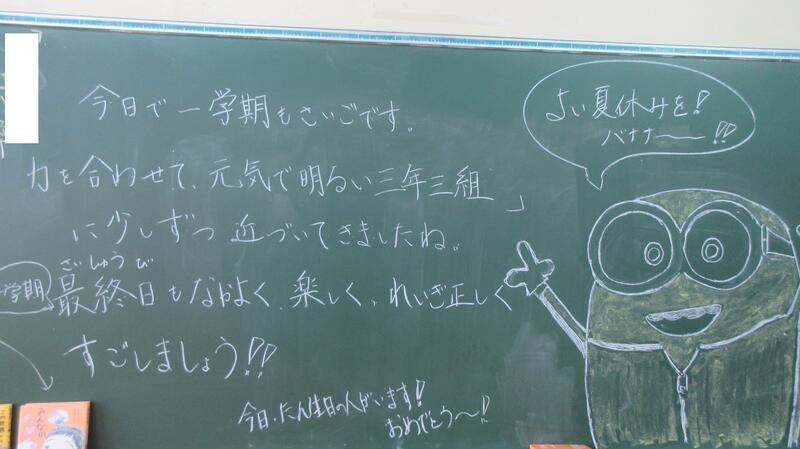 今日で一学期もさいごです。
力を合わせて、元気で明るい三年三組」
に少しずつ近づいてきましたね。
さいしゅうび
学期
最終日もなかよく、楽しく、れいぎ正しく
すごしましょう!!
今日、たん生日の人がいます!
おめでとう〜!
よい夏休みを!
バナナー!!
みんなの